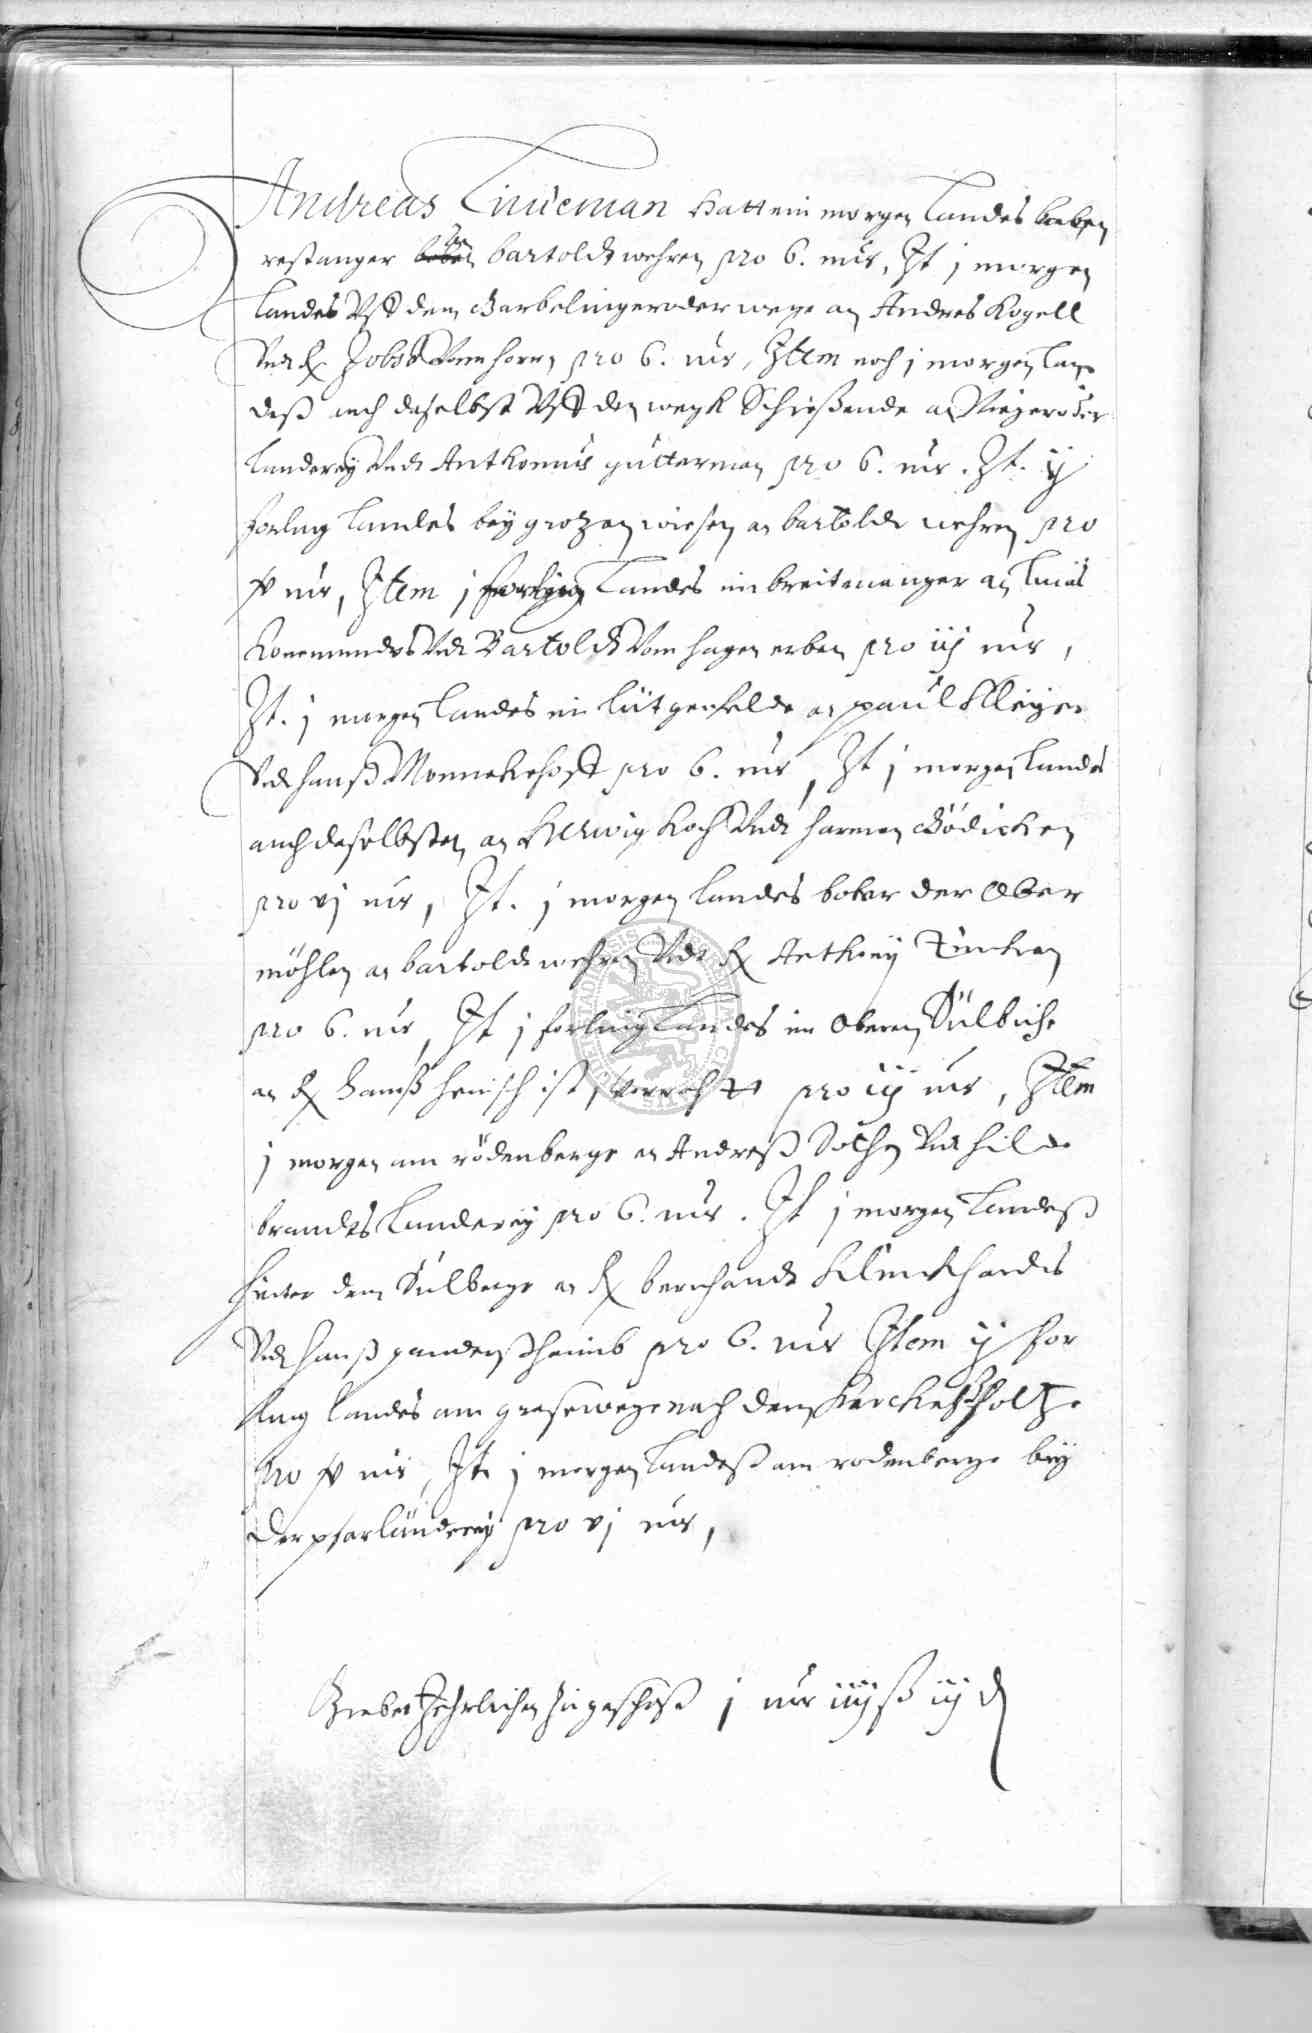 Andreas Lindeman Hatt ein morgen Landes baben
restanger an bartoldt wehren pro 6. mr, It j morgen
Landes Uff dem Barbelingeroder wege an Andres Kogell
Undt H Jobst Vom horn, pro 6. mr, Item noch j morgen Lan
deß auch daselbst Uff den wegk Schießende an
Landerey Undt Anthonius gutterman pro 6. mr. It. ij
forling Landes bey grotzen wiesen an bartoldt wehren pro
mr, Item j forling Landes im breitenanger an
Konemundes Undt Bartoldt Vom hagen erben pro iij mr,
It. j morgen Landes im lütgenfelde an paul Meyer
Undt hanß Monnekehoff pro 6. mr, It j morgen Landes
auch daselbsten an Herwig Koch Undt harmen Bödicken
pro vj mr, It. j morgen Landes bober der Ober
möhlen an bartoldt wehren Undt H Anthony
pro 6. mr, It j forling Landes im Oberen Sülbiche
an H Hanß henisch ist, Verrechtt pro iij mr, Item
j morgen am rödenberge an Andreß Undt hilde
brandes Landerey pro 6. mr. It j morgen Landeß
hinter dem Sülberge an H bernhandt Klinckhardes
Undt hanß gandersheimb pro 6. mr Item ij for
ling Landes am grasewege nach dem Kerckenholtze
pro mr, It j morgen Landeß am rodenberge bey
der pfarländerey pro vj mr,
Giebet Jehrlichen zu geschoß j mr iiij ß iij d